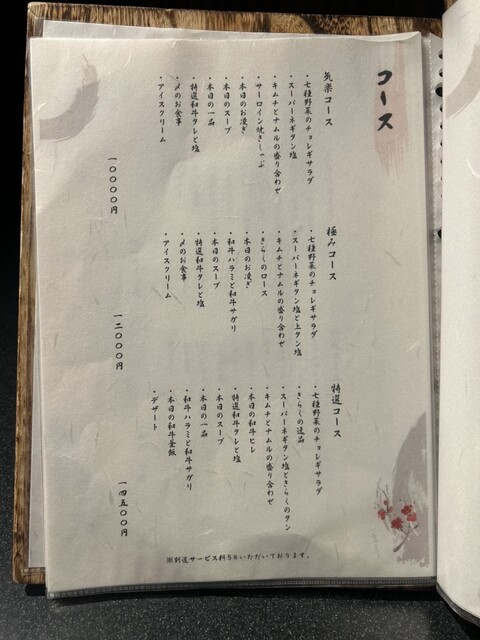 コース
気楽コース
・七種野菜のチョレギサラダ
・スーパーネギタン塩
・キムチとナムルの盛り合わせ
・サーロイン焼きしゃぶ
・本日のお凌ぎ
・本日のスープ
・本日の一品
・特選和牛タレと塩
・〆のお食事
・アイスクリーム
一〇〇〇〇円
極みコース
・七種野菜のチョレギサラダ
・スーパーネギタン塩と上タン塩
・キムチとナムルの盛り合わせ
・きらくのロース
・本日のお凌ぎ
・和牛ハラミと和牛サガリ
・本日のスープ
・特選和牛タレと塩
・〆のお食事
・アイスクリーム
一二〇〇〇円
特選コース
・七種野菜のチョレギサラダ
・きらくの逸品
・スーパーネギタン塩ときらくのタン
・キムチとナムルの盛り合わせ
・本日の和牛ヒレ
・特選和牛タレと塩
・本日のスープ
・本日の一品
・和牛ハラミと和牛サガリ
・本日の和牛釜飯
・デザート
一四五〇〇円
※別途サービス料5%いただいております。